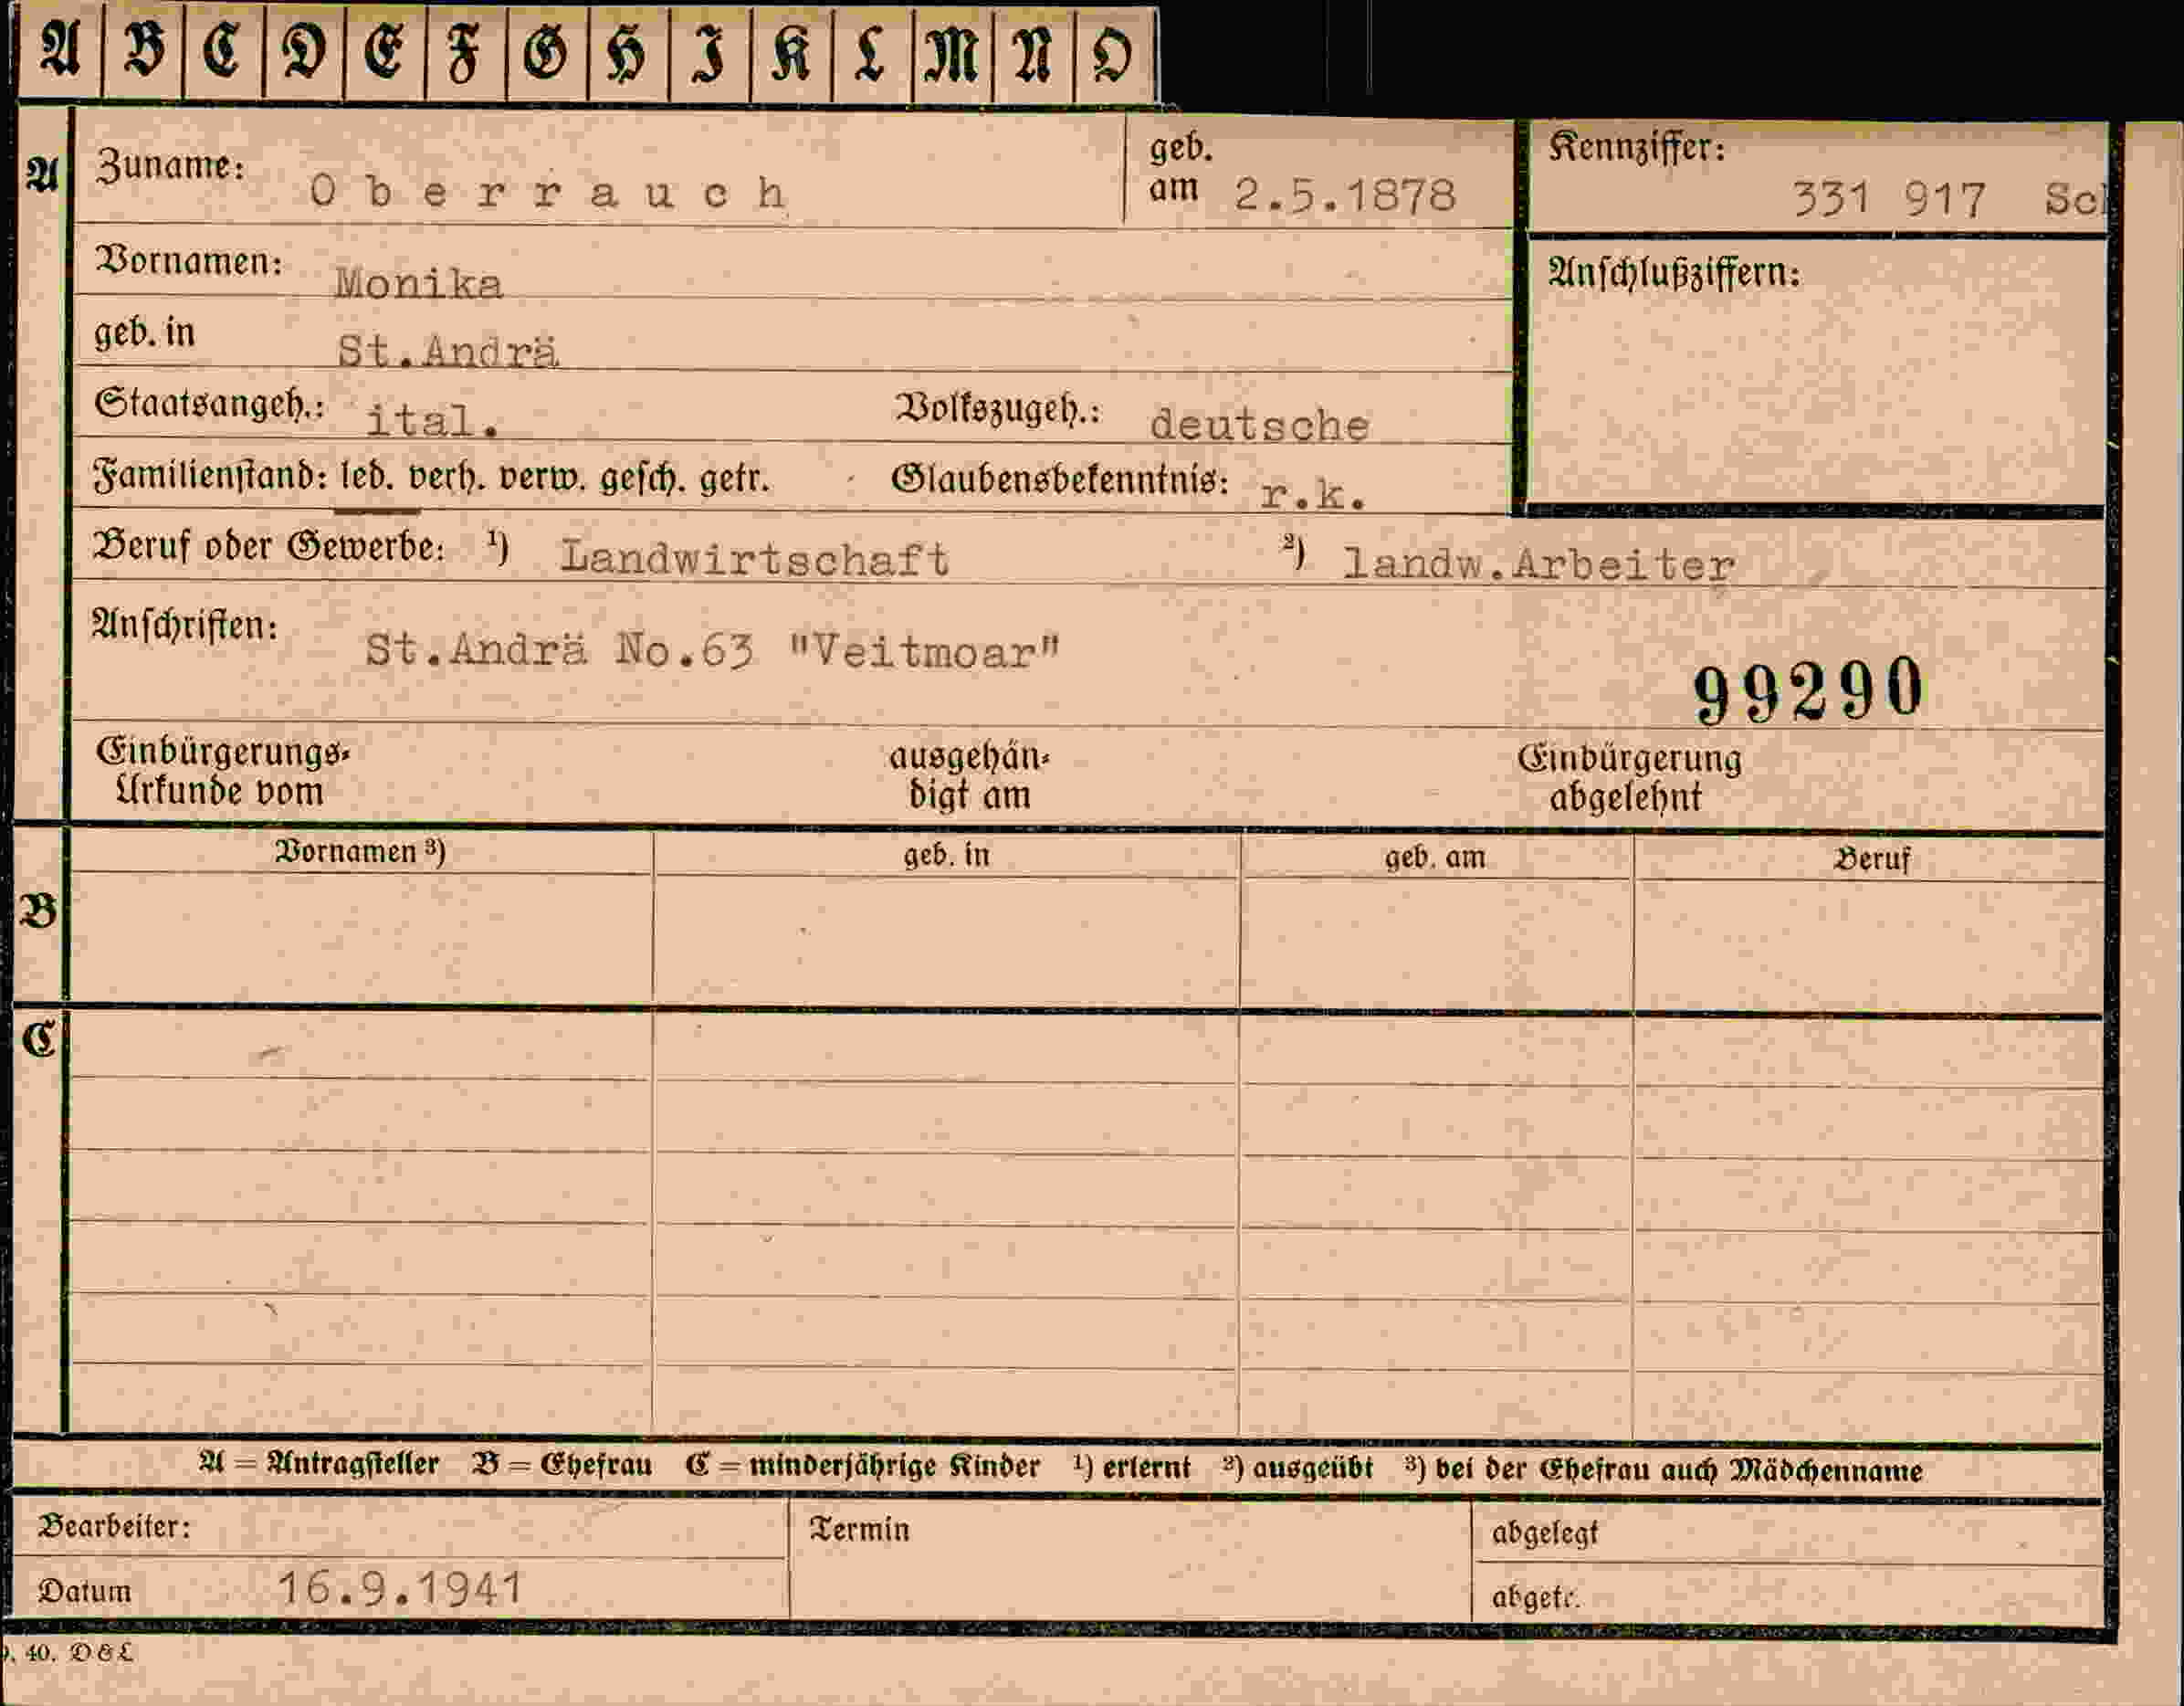 A B C D E F G H I K L M N O
A
Zuname: Oberrauch
geb. am 2.5.1878
Kennziffer: 331 917
Vornamen: Monika
Anschlußziffern:
geb. in St.Andrä
Staatsangeh.: ital. Volkszugeh.: deutsche
Familienstand: led. verh. verw. gesch. getr. Glaubensbekenntnis: r.k.
Beruf oder Gewerbe: ¹) Landwirtschaft ²) landw.Arbeiter
Anschriften: St.Andrä No.63 "Veitmoar"
99290
Einbürgerungs-
Urkunde vom
ausgehän-
digt am
Einbürgerung
abgelehnt
Vornamen ³) geb. in geb. am Beruf
B
C
A = Antragsteller B = Ehefrau C = minderjährige Kinder ¹) erlernt ²) ausgeübt ³) bei der Ehefrau auch Mädchenname
Bearbeiter: Termin abgelegt
Datum 16.9.1941 abgetr.
40. D & L